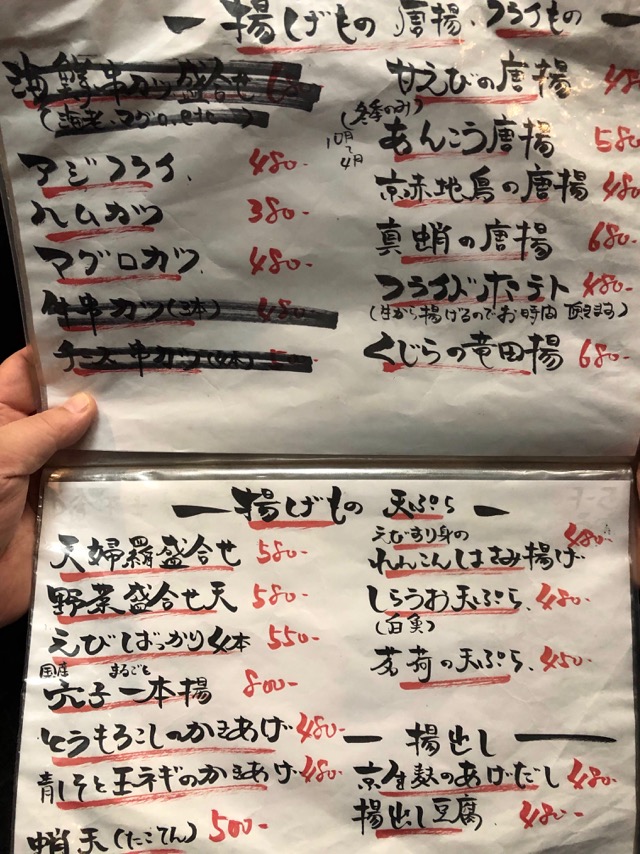 揚げもの 唐揚、フライもの
海鮮串カツ盛合せ
(海老、マグロ、etc)
アジフライ 480-
ハムカツ 380-
マグロカツ 480-
牛串カツ(2本) 480-
チーズ串カツ
甘えびの唐揚 48
(冬季のみ)
10月〜4月 あんこう唐揚 580
京赤地鳥の唐揚 480
真蛸の唐揚 680-
フライドポテト 480-
(生から揚げるのでお時間頂きます)
くじらの竜田揚 680-
揚げもの 天ぷら
天婦羅盛合せ 580-
野菜盛合せ天 580-
えびばっかり4本 550-
国産 まるごと
穴子一本揚 800-
とうもろこしのかきあげ 480-
青しそと玉ネギのかきあげ 480-
蛸天(たこてん) 500-
えびすり身の
れんこんはさみ揚げ 480-
しらうお天ぷら 480-
(白魚)
茗荷の天ぷら 450-
揚出し
京生麩のあげだし 480-
揚出し豆腐 480-